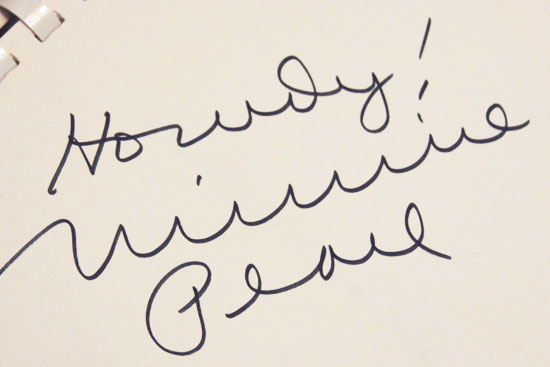 Howdy!
Minnie
Pearl